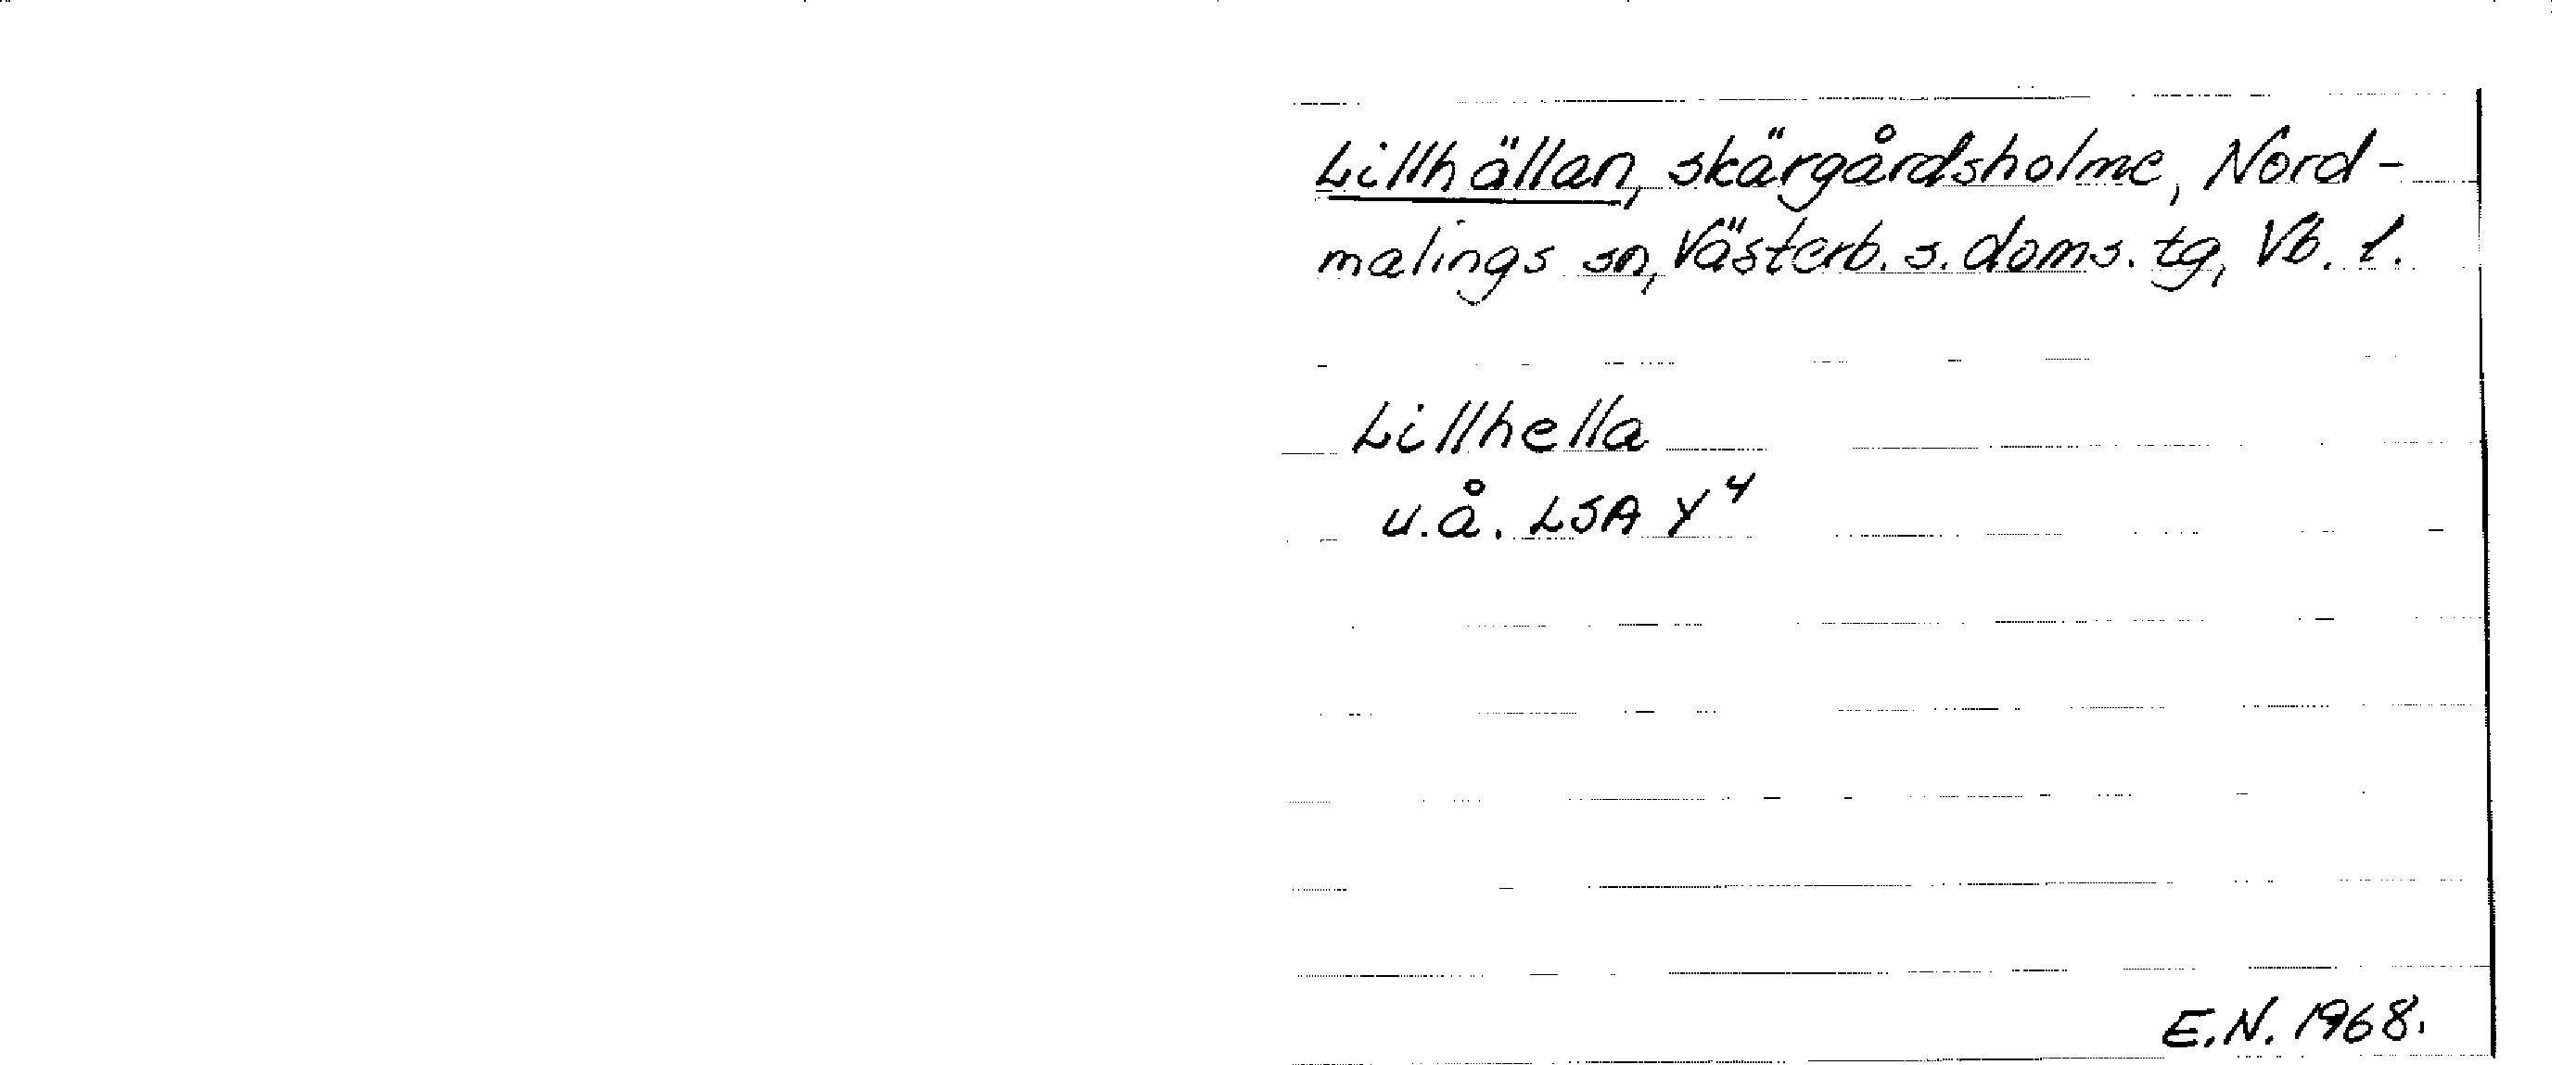 Lillhällan, skärgårdsholme, Nord-
malings sn, Västerb. s. doms. tg, Vb. l.
Lillhella
u.å. LSA Y⁴
E.N. 1968.